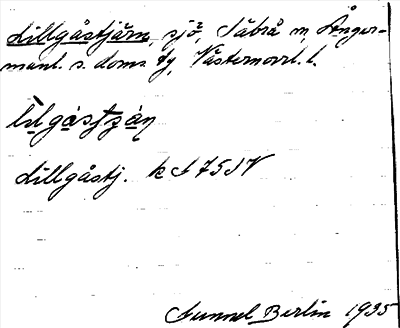 Lillgåstjärn, sjö, Säbrå sn, Ånger-
manl. s. doms. fg, Västernorrl. l.
Lillgåstj. k A 75 SV
Gunnel Berlin 1935